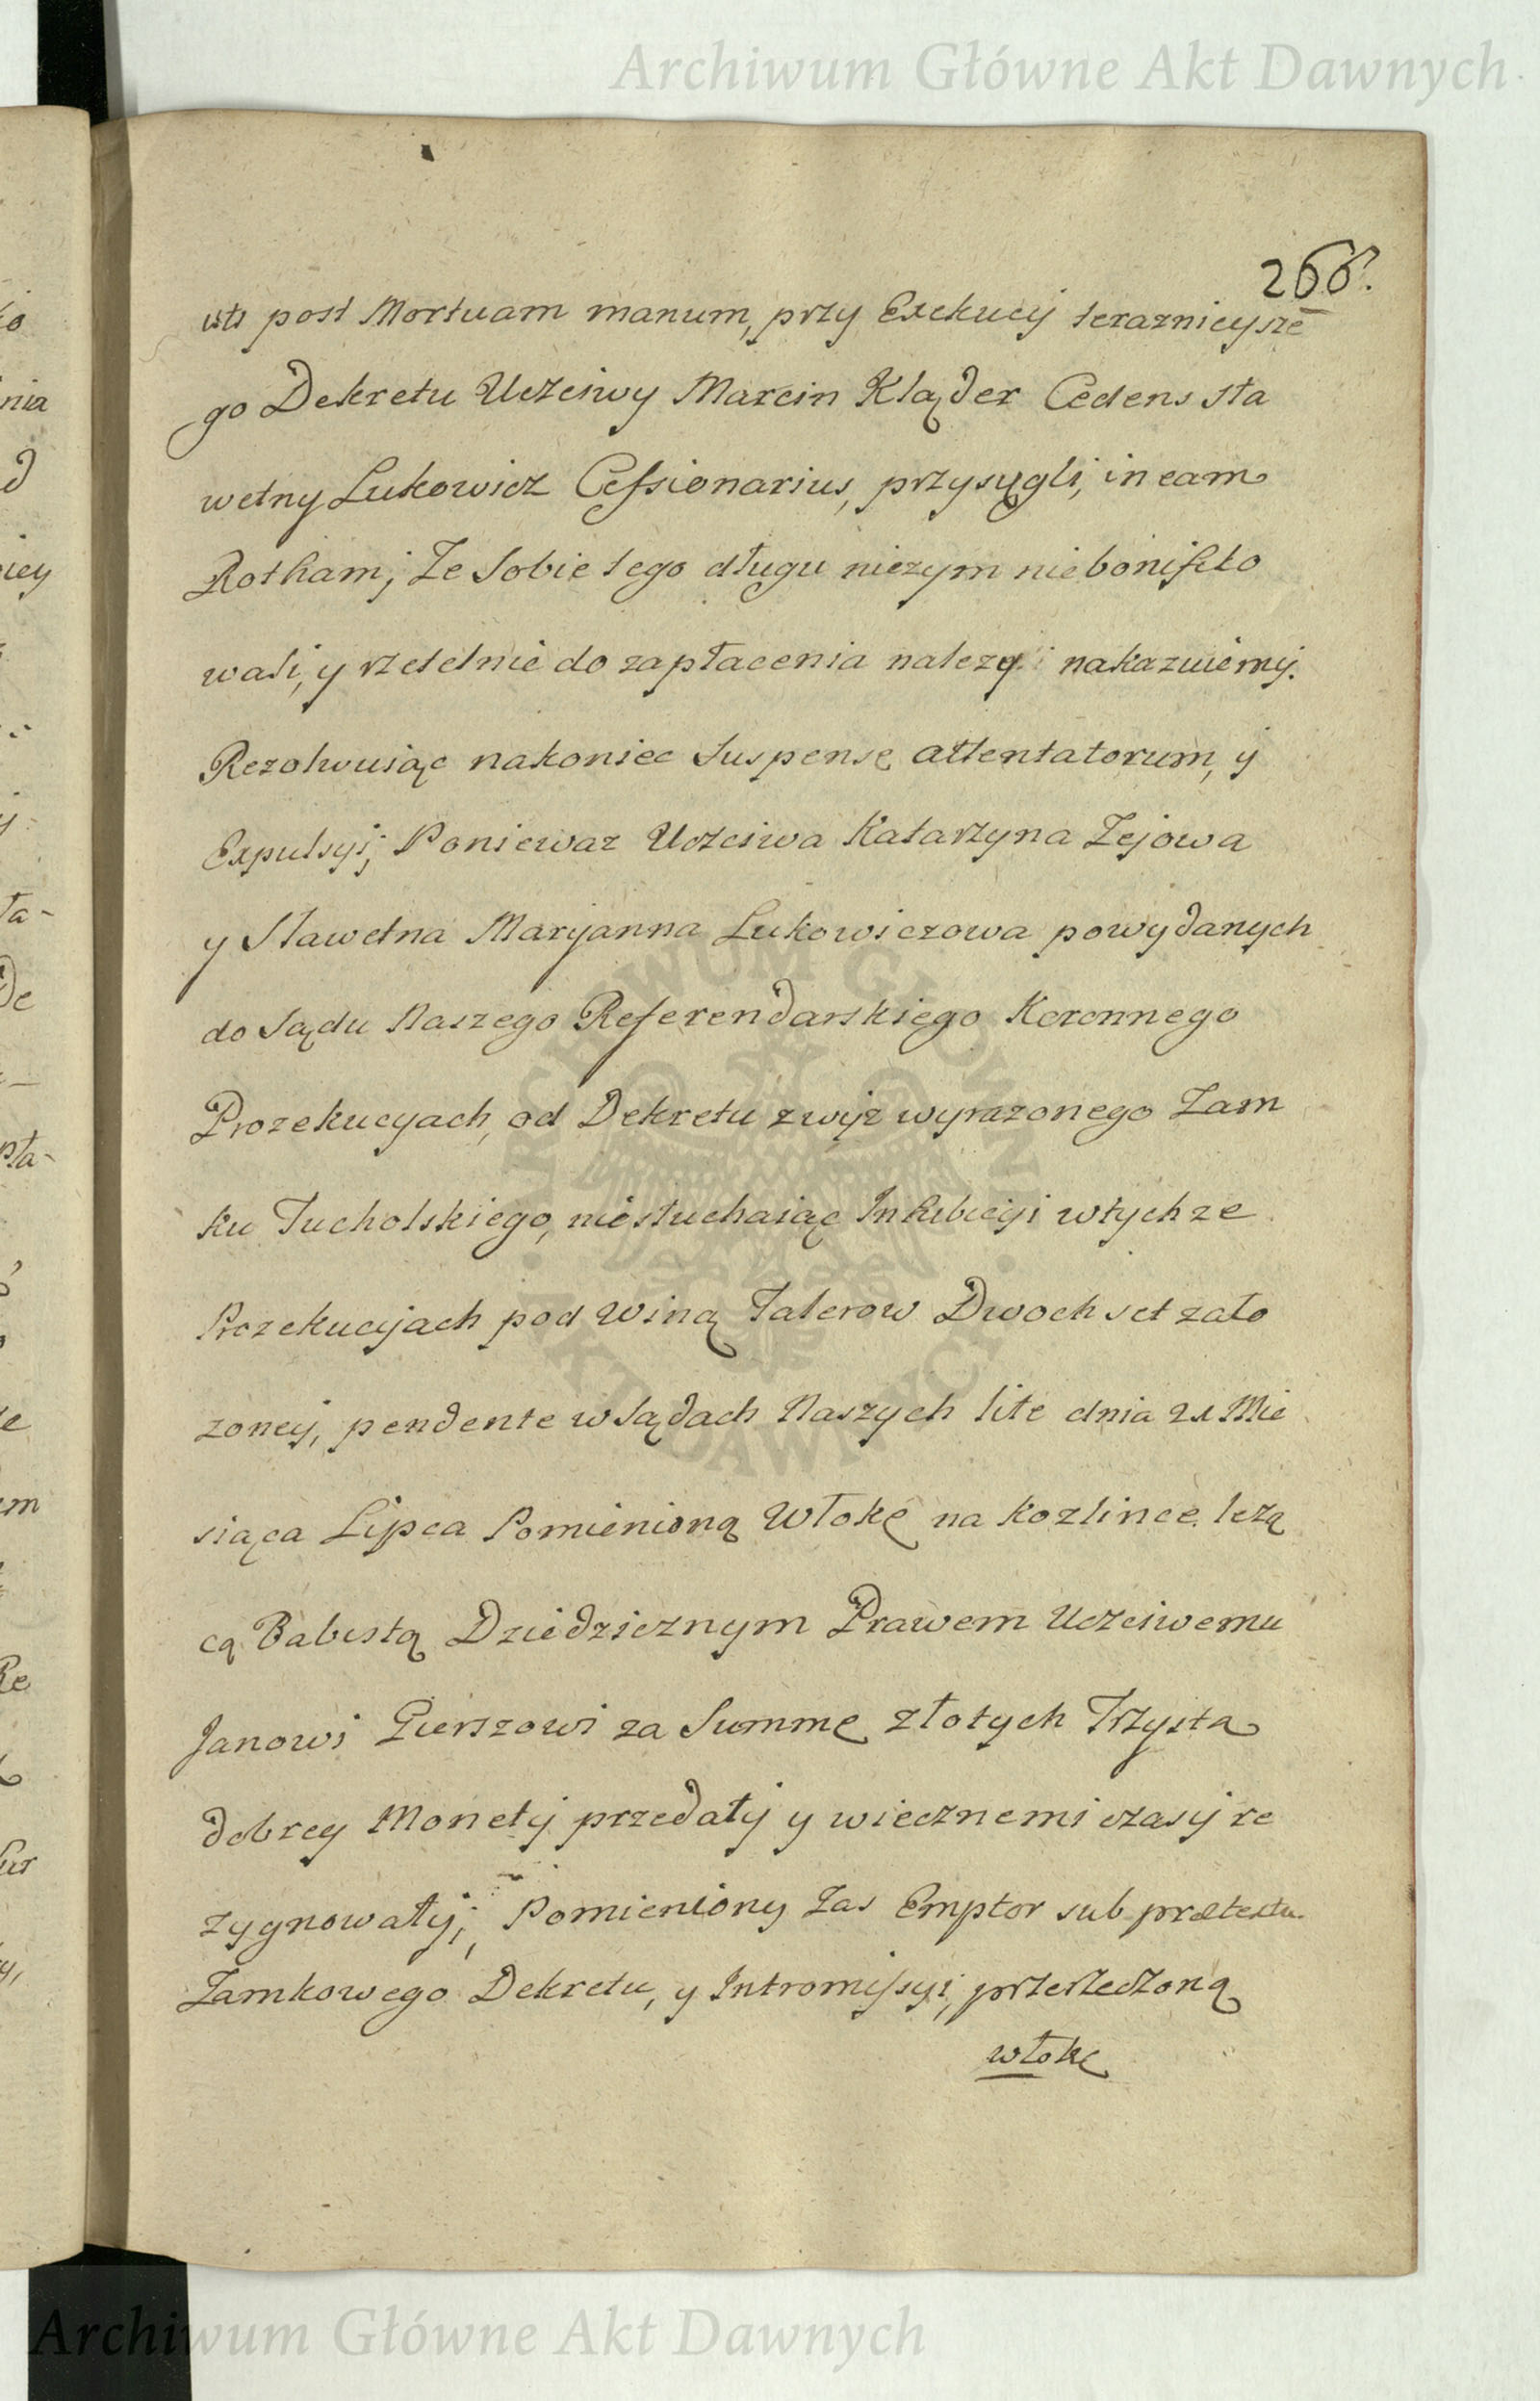 Archiwum Główne Akt Dawnych
266.
uti post Mortuam manum, przy Exekucij teraznieysze
go Dekretu Uczciwy Marcin Kląder Cedens sła
wetny Lukowicz Cessionarius, przysięgli, in eam
Rotham; Ze Sobie tego długu niczym nieboniffko
wali, y rzetelnie do zapłacenia nalezy nakazuiemy.
Rezolwuiąc nakoniec Suspensę attentatorum, y
Expulsyi; Poniewaz Uczciwa Katarzyna Zejowa
y Sławetna Maryanna Lukowiczowa powydanych
do Sądu Naszego Referendarskiego Koronnego
Prozekucyach, od Dekretu zwyz wyrazonego Zam
ku Tucholskiego, niesłuchaiąc Inhibicyi wtychze
Prozekucyach pod Winą Talerow Dwoch set zało
zoney, pendente w Sądach Naszych lite dnia 21 Mie
siąca Lipca Pomienioną Włokę na Kozlince lezą
cą Babistą Dziedzicznym Prawem Uczciwemu
Janowi Gierszowi za Summę złotych Trzysta
dobrey Monety przedały y wiecznemi czasy re
zygnowały; Pomieniony Zas Emptor sub prætextu
Zamkowego Dekretu, y Intromissyi, przerzeczoną
włokę
ARCHIWUM GŁÓWNE
AKT DAWNYCH
Archiwum Główne Akt Dawnych